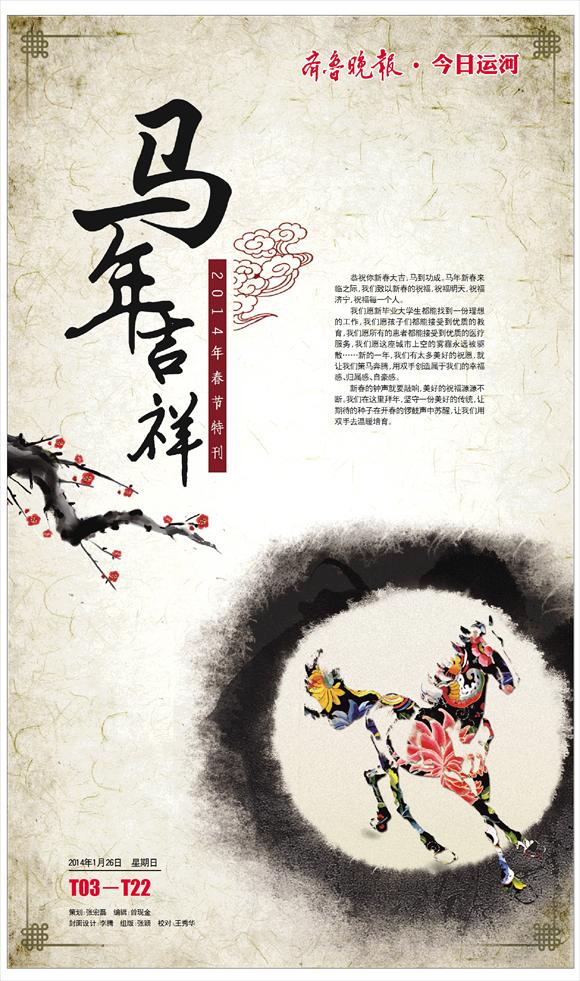 齐鲁晚报·今日运河
马年吉祥
2014年春节特刊
恭祝你新春大吉,马到功成。马年新春来
临之际,我们致以新春的祝福,祝福明天,祝福
济宁,祝福每一个人。
我们愿新毕业大学生都能找到一份理想
的工作,我们愿孩子们都能接受到优质的教
育,我们愿所有的患者都能接受到优质的医疗
服务,我们愿这座城市上空的雾霾永远被驱
散……新的一年,我们有太多美好的祝愿,就
让我们策马奔腾,用双手创造属于我们的幸福
感、归属感、自豪感。
新春的钟声就要敲响,美好的祝福源源不
断,我们在这里拜年,坚守一份美好的传统,让
期待的种子在开春的锣鼓声中苏醒,让我们用
双手去温暖培育。
2014年1月26日 星期日
T03—T22
策划:张宏磊 编辑:曾现金
封面设计:李腾 组版:张颖 校对:王秀华